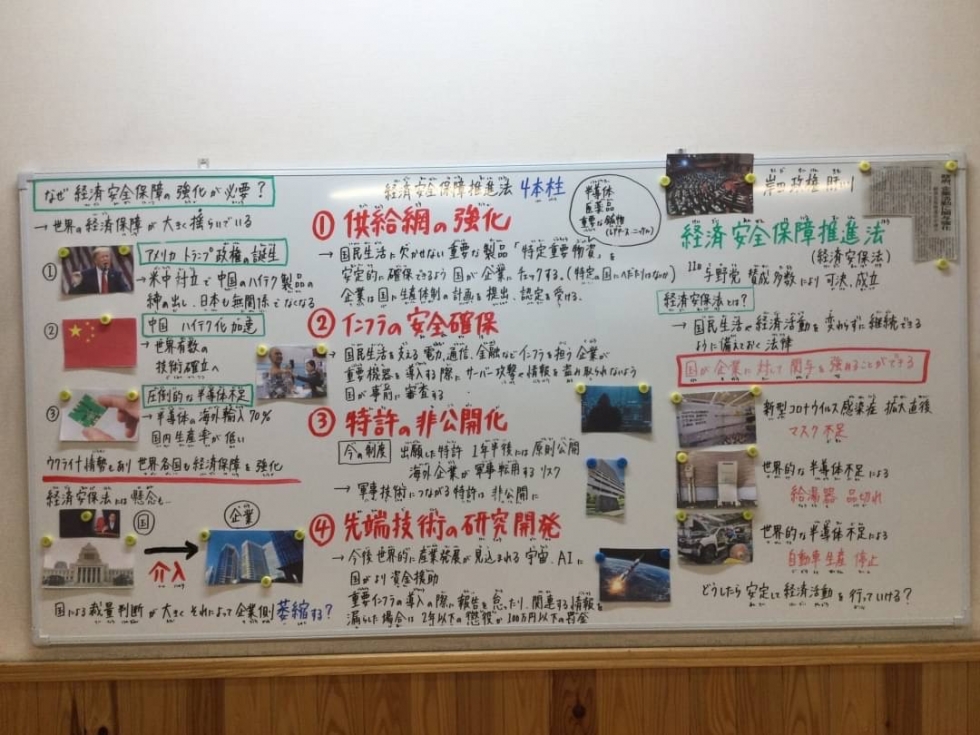 なぜ 経済安全保障の 強化が必要？
→ 世界の経済保障が大きく揺らいでいる
① アメリカ トランプ政権の誕生
→ 米中対立で中国のハイテク製品の
締め出し、日本も無関係でなくなる
② 中国 ハイテク化加速
→ 世界有数の
技術確立へ
③ 圧倒的な半導体不足
→ 半導体の海外輸入70%
国内生産率が低い
ウクライナ情勢もあり 世界各国も経済保障を強化
経済安保法には懸念も…
国
企業
介入
国による裁量判断が大きく それによって企業側 萎縮する？
経済安全保障推進法 4本柱
半導体
医薬品
重要な鉱物
① 供給網の強化
→ 国民生活に欠かせない重要な製品「特定重要物資」を
安定的に確保できるよう 国が企業に
企業は国に生産体制の計画を提出、認定を受ける。
② インフラの安全確保
→ 国民生活を支える 電力、通信、金融などインフラを担う企業が
重要機器を導入する際に サーバー攻撃や情報を盗み取られないよう
国が事前に審査する
③ 特許の非公開化
今の制度 出願した特許 1年半後には原則公開
海外企業が軍事転用するリスク
→ 軍事技術につながる特許は 非公開に
④ 先端技術の研究開発
→ 今後世界的に産業発展が見込まれる 宇宙、AIに
国がより資金援助
重要インフラの導入の際に報告を怠ったり、関連する情報を
漏らした場合は 2年以下の懲役か100万円以下の罰金
岸田政権
経済安全保障推進法
（経済安保法）
11日 与野党 賛成多数により 可決、成立
経済安保法とは？
→ 国民生活や経済活動を変わらずに継続できる
ように備えておく法律
国が企業に対して関与を強めることができる
新型コロナウイルス感染症 拡大直後
マスク不足
世界的な半導体不足による
給湯器 品切れ
世界的な半導体不足による
自動車生産 停止
どうしたら安定して経済活動を行っていける？